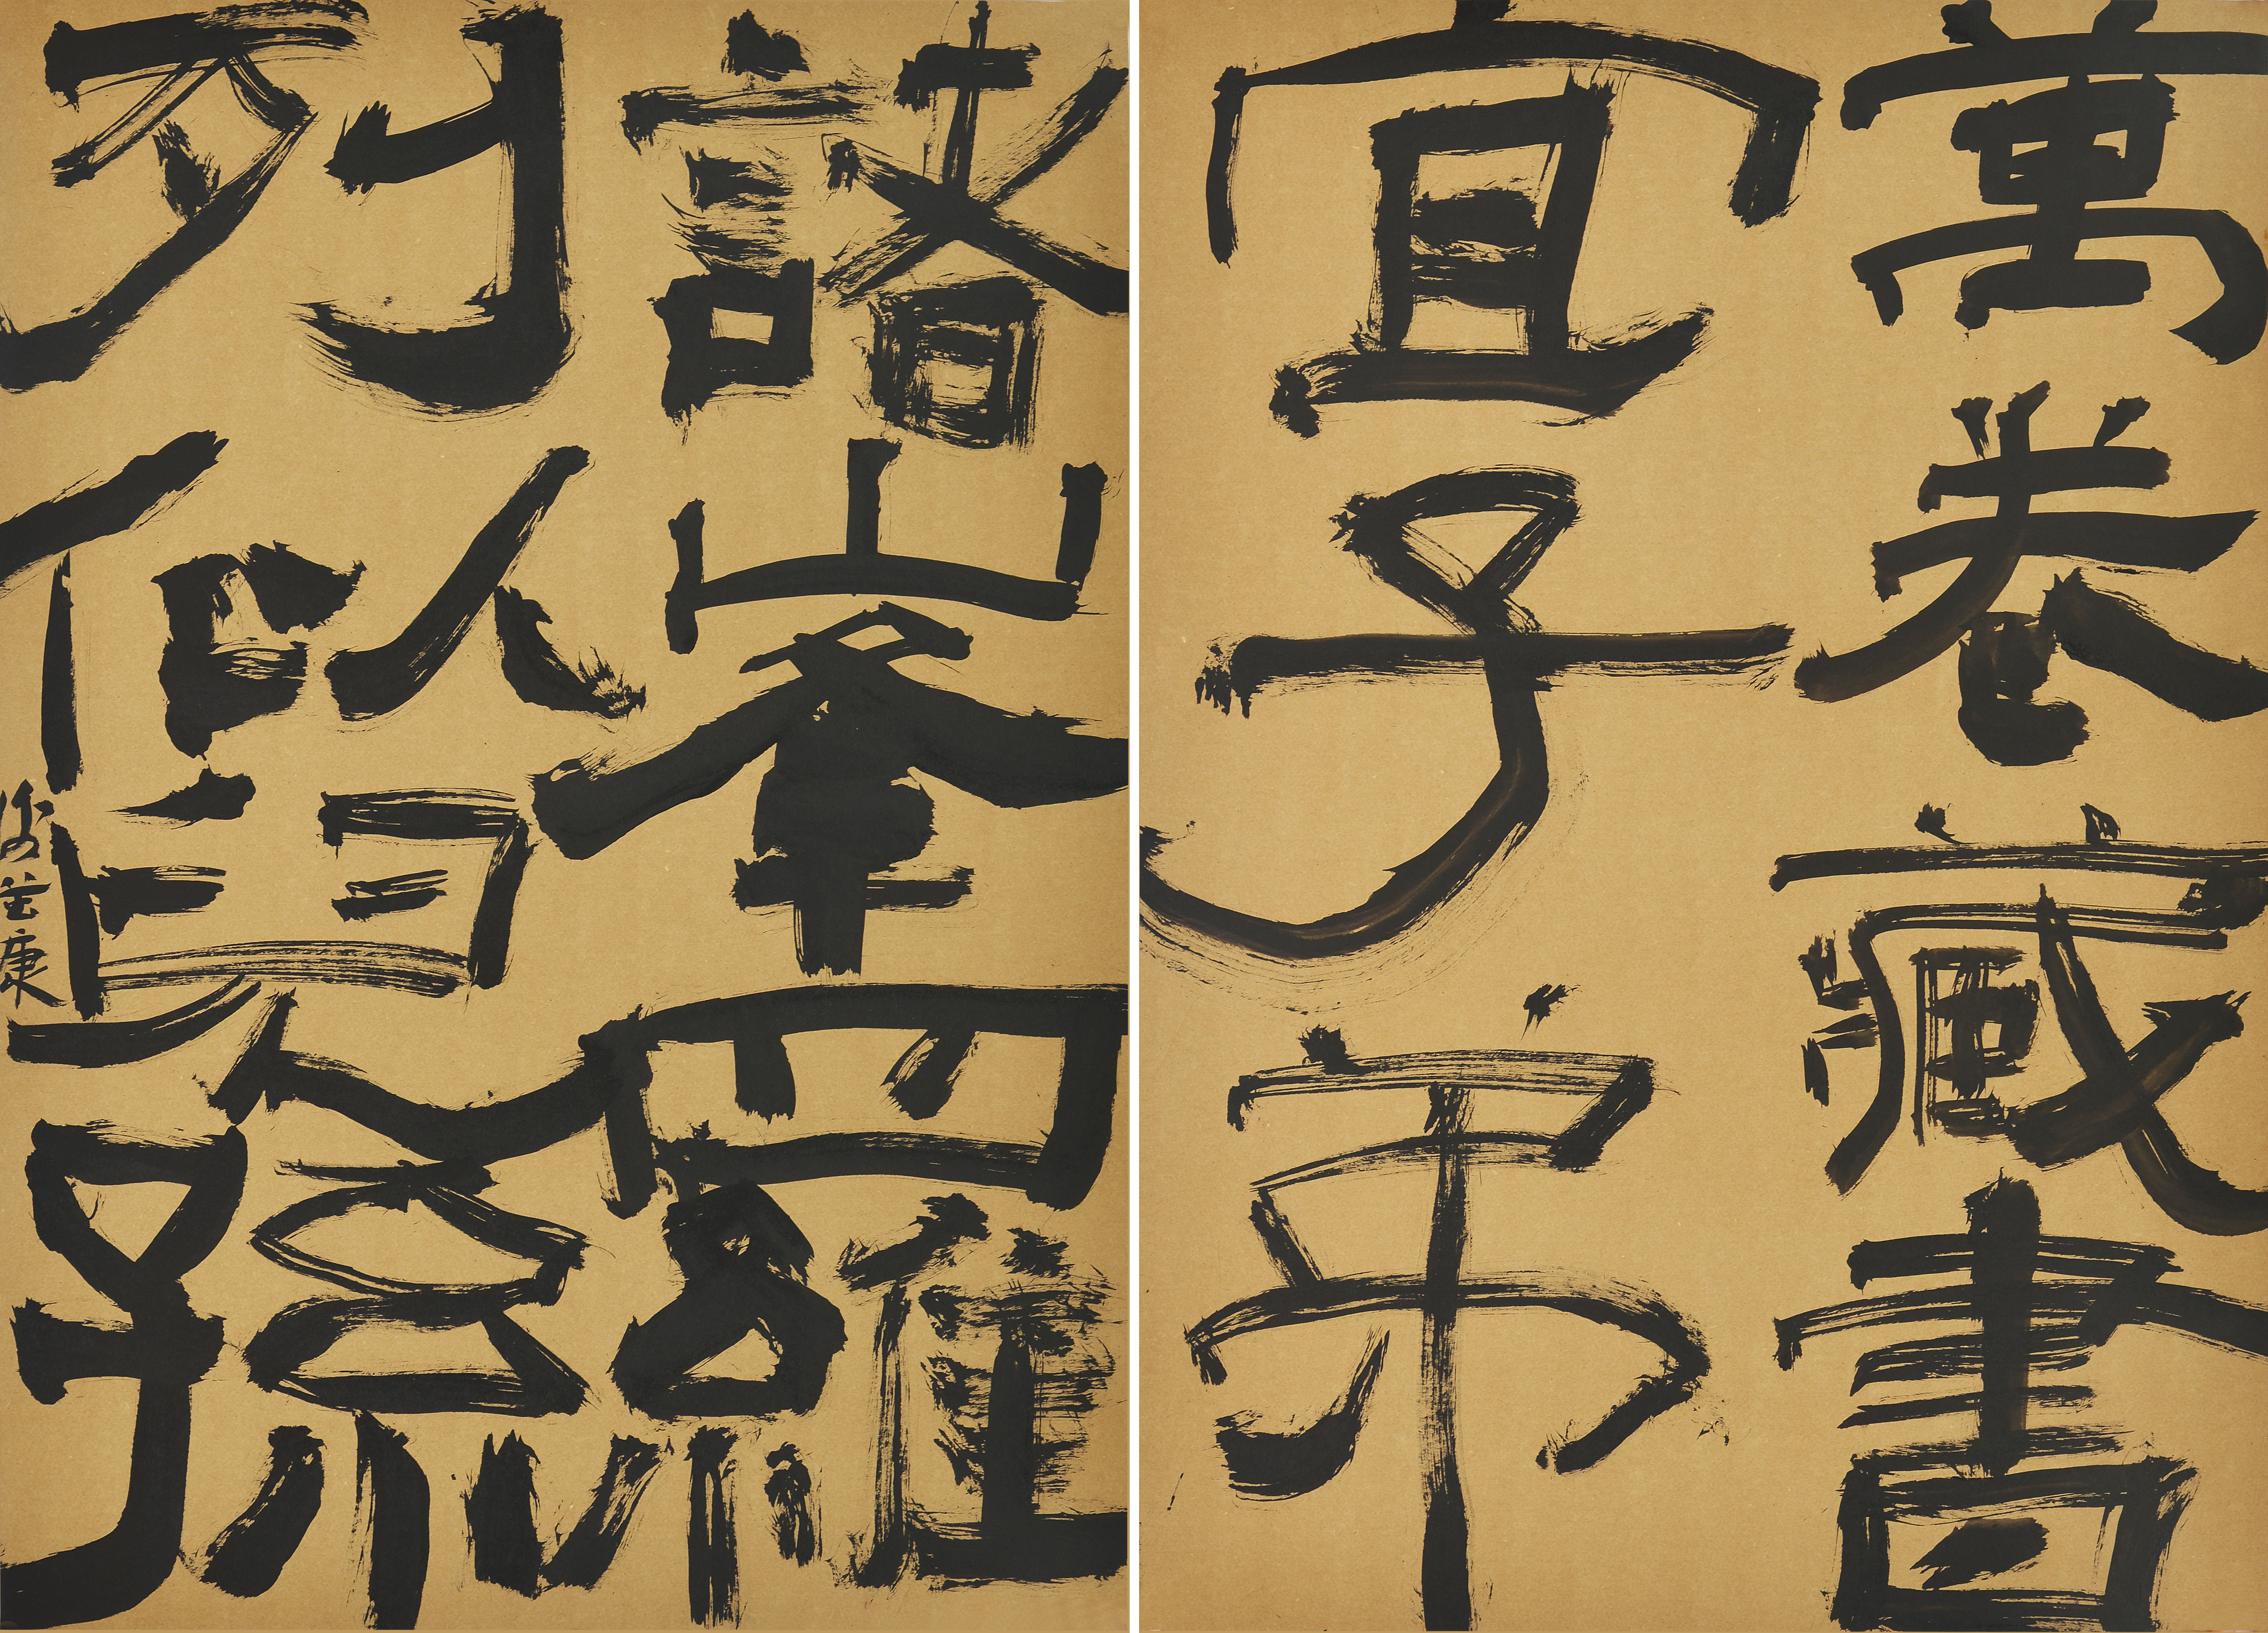 萬卷藏書
宜子弟
諸峯羅
列似兒孫